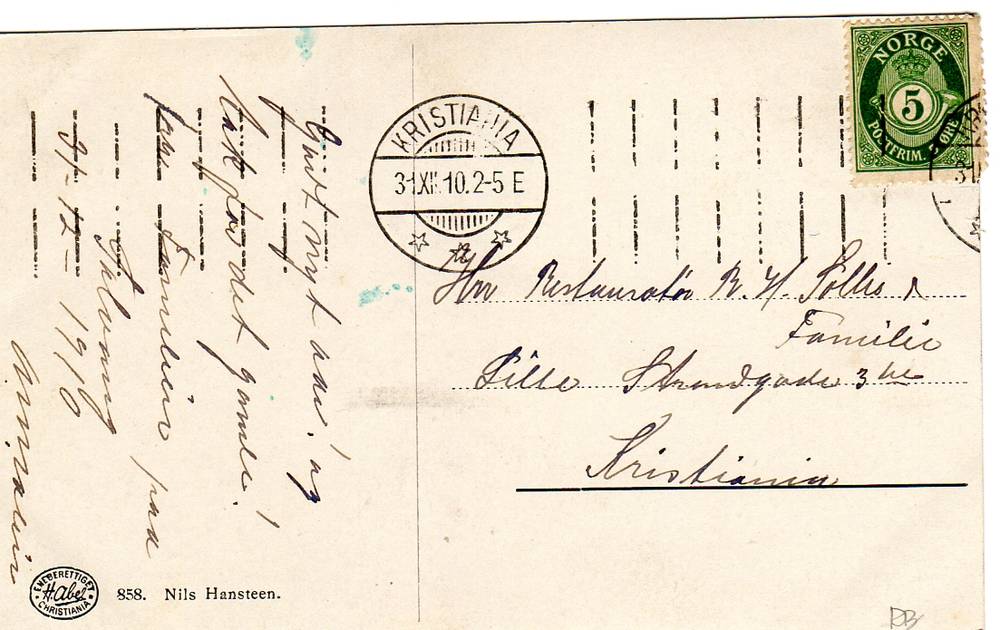 Godt nytt aar! og
Tak for det gamle!
fra Familien paa
31-12-1910
KRISTIANIA
31.XII.10.2-5 E
NORGE
5
POSTFRIM. 5 ØRE
Hrr Restauratør B. H. Solli
Familie
Lille Strandgade 3
Kristiania
ENEBERETTIGET
H. Abel
CHRISTIANIA
858. Nils Hansteen.
RB